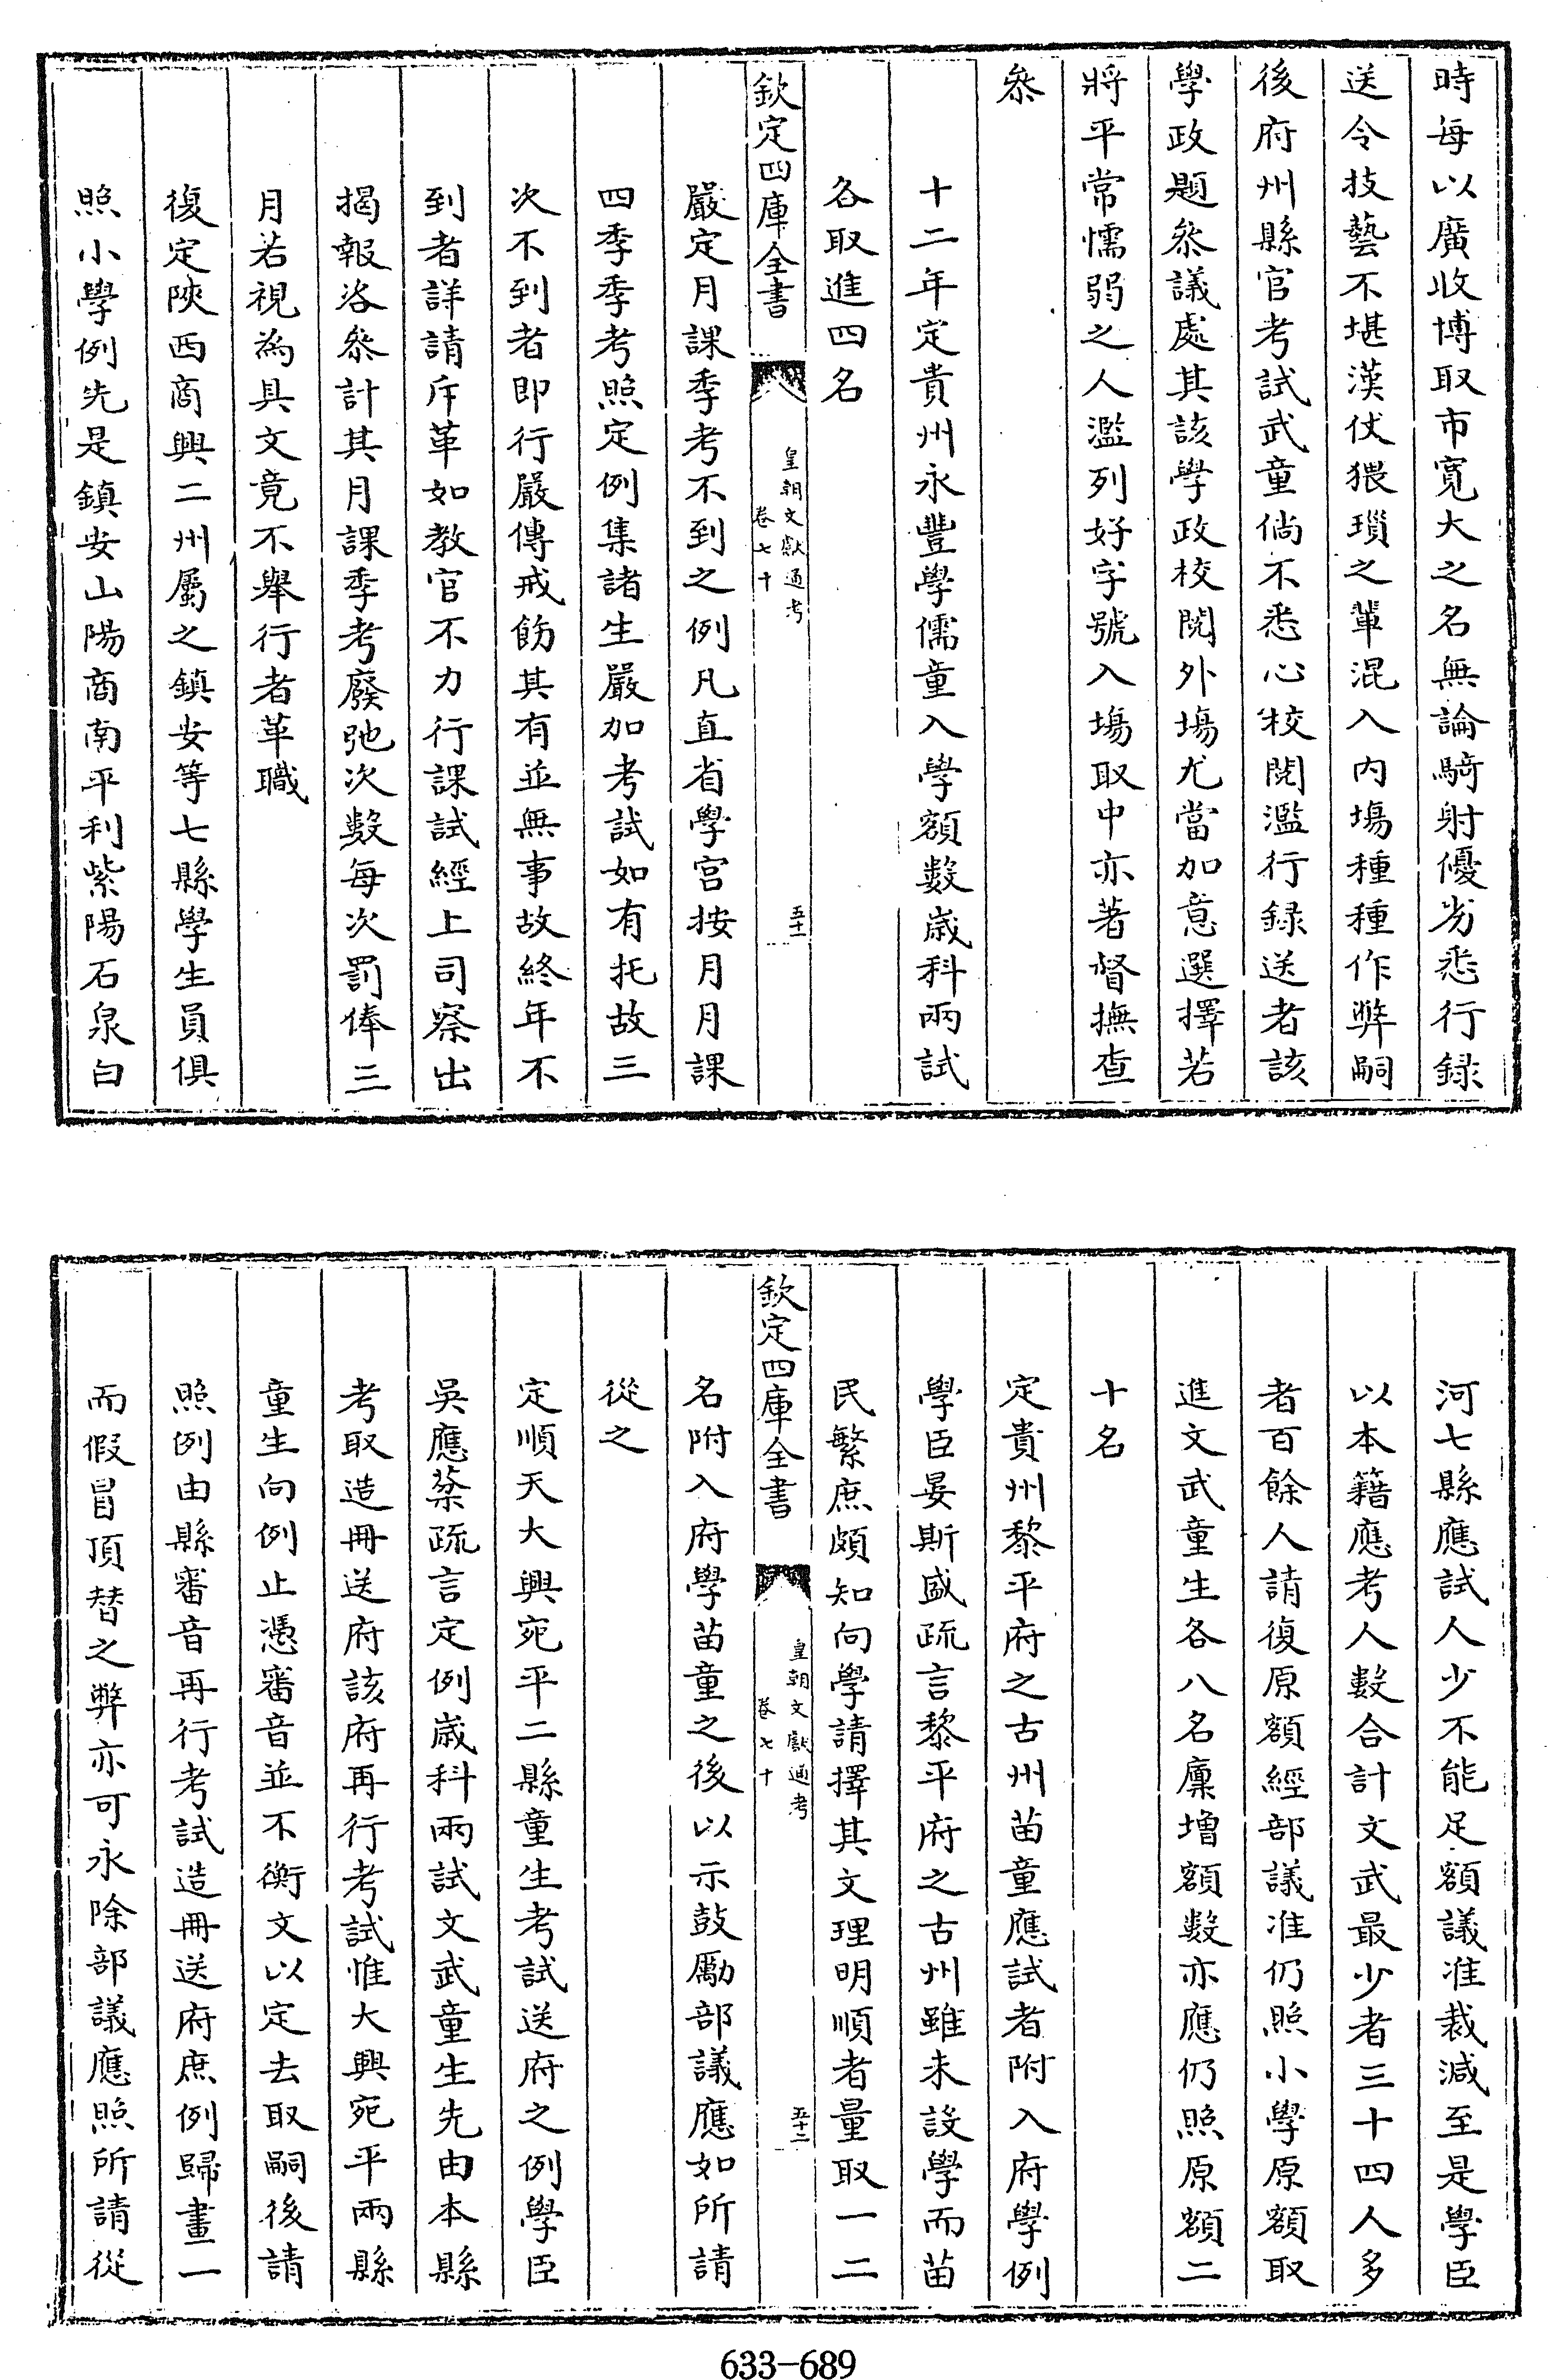 時每以廣收博取市寛大之名無論騎射優劣悉行録
送令技藝不堪漢仗猥瑣之輩混入内場種種作弊嗣
後府州縣官考試武童倘不悉心校閲濫行録送者該
學政題叅議處其該學政校閲外場尤當加意選擇若
將平常懦弱之人濫列好字號入場取中亦著督撫查
叅
十二年定貴州永豐學儒童入學額數歲科兩試
各取進四名
欽定四庫全書
皇朝文獻通考
卷七十
五十一
嚴定月課季考不到之例凡直省學宫按月月課
四季季考照定例集諸生嚴加考試如有托故三
次不到者即行嚴傳戒飭其有並無事故終年不
到者詳請斥革如教官不力行課試經上司察出
揭報咨叅計其月課季考廢弛次數每次罰俸三
月若視為具文竟不舉行者革職
復定陜西商興二州屬之鎮安等七縣學生員俱
照小學例先是鎮安山陽商南平利紫陽石泉白
河七縣應試人少不能足額議准裁減至是學臣
以本籍應考人數合計文武最少者三十四人多
者百餘人請復原額經部議准仍照小學原額取
進文武童生各八名廩增額數亦應仍照原額二
十名
定貴州黎平府之古州苗童應試者附入府學例
學臣晏斯盛疏言黎平府之古州雖未設學而苗
民繁庶頗知向學請擇其文理明順者量取一二
欽定四庫全書
皇朝文獻通考
卷七十
五十二
名附入府學苗童之後以示鼓勵部議應如所請
從之
定順天大興宛平二縣童生考試送府之例學臣
吳應棻疏言定例歲科兩試文武童生先由本縣
考取造冊送府該府再行考試惟大興宛平兩縣
童生向例止憑審音並不衡文以定去取嗣後請
照例由縣審音再行考試造冊送府庶例歸畫一
而假冒頂替之弊亦可永除部議應照所請從
633-689